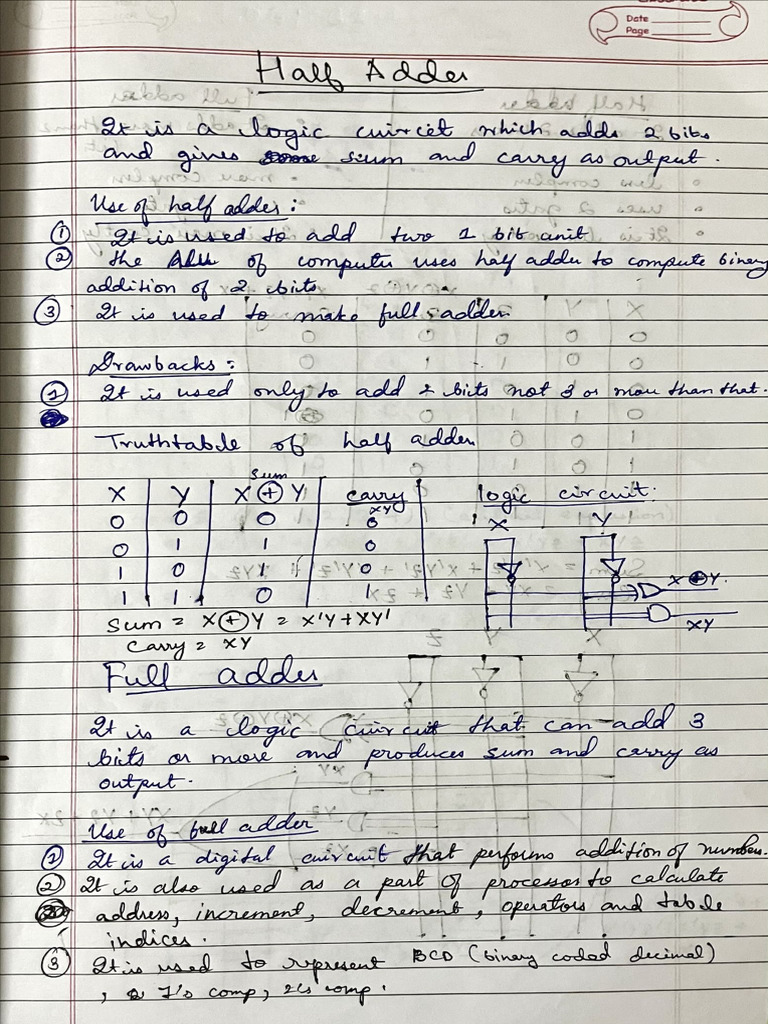 Date
Page
Half Adder
It is a logic circuit which adds 2 bits
and gives sum and carry as output.
Use of half adder:
① It is used to add two 1 bit unit
② The ALU of computer uses half adder to compute binary
addition of 2 bits
③ It is used to make full adder
Drawbacks:
① It is used only to add 2 bits not 3 or more than that.
Truthtable of half adder
sum
X Y X ⊕ Y carry logic circuit:
XY X Y
0 0 0 0
0 1 1 0
1 0 1 0
1 1 0 1
X ⊕ Y.
XY
Sum = X ⊕ Y = X'Y + XY'
Carry = XY
Full adder
It is a logic circuit that can add 3
bits or more and produces sum and carry as
output.
Use of full adder
① It is a digital circuit that performs addition of numbers.
② It is also used as a part of processor to calculate
address, increment, decrement, operators and table
indices.
③ It is used to represent BCD (binary coded decimal)
, 1's comp, 2's comp.